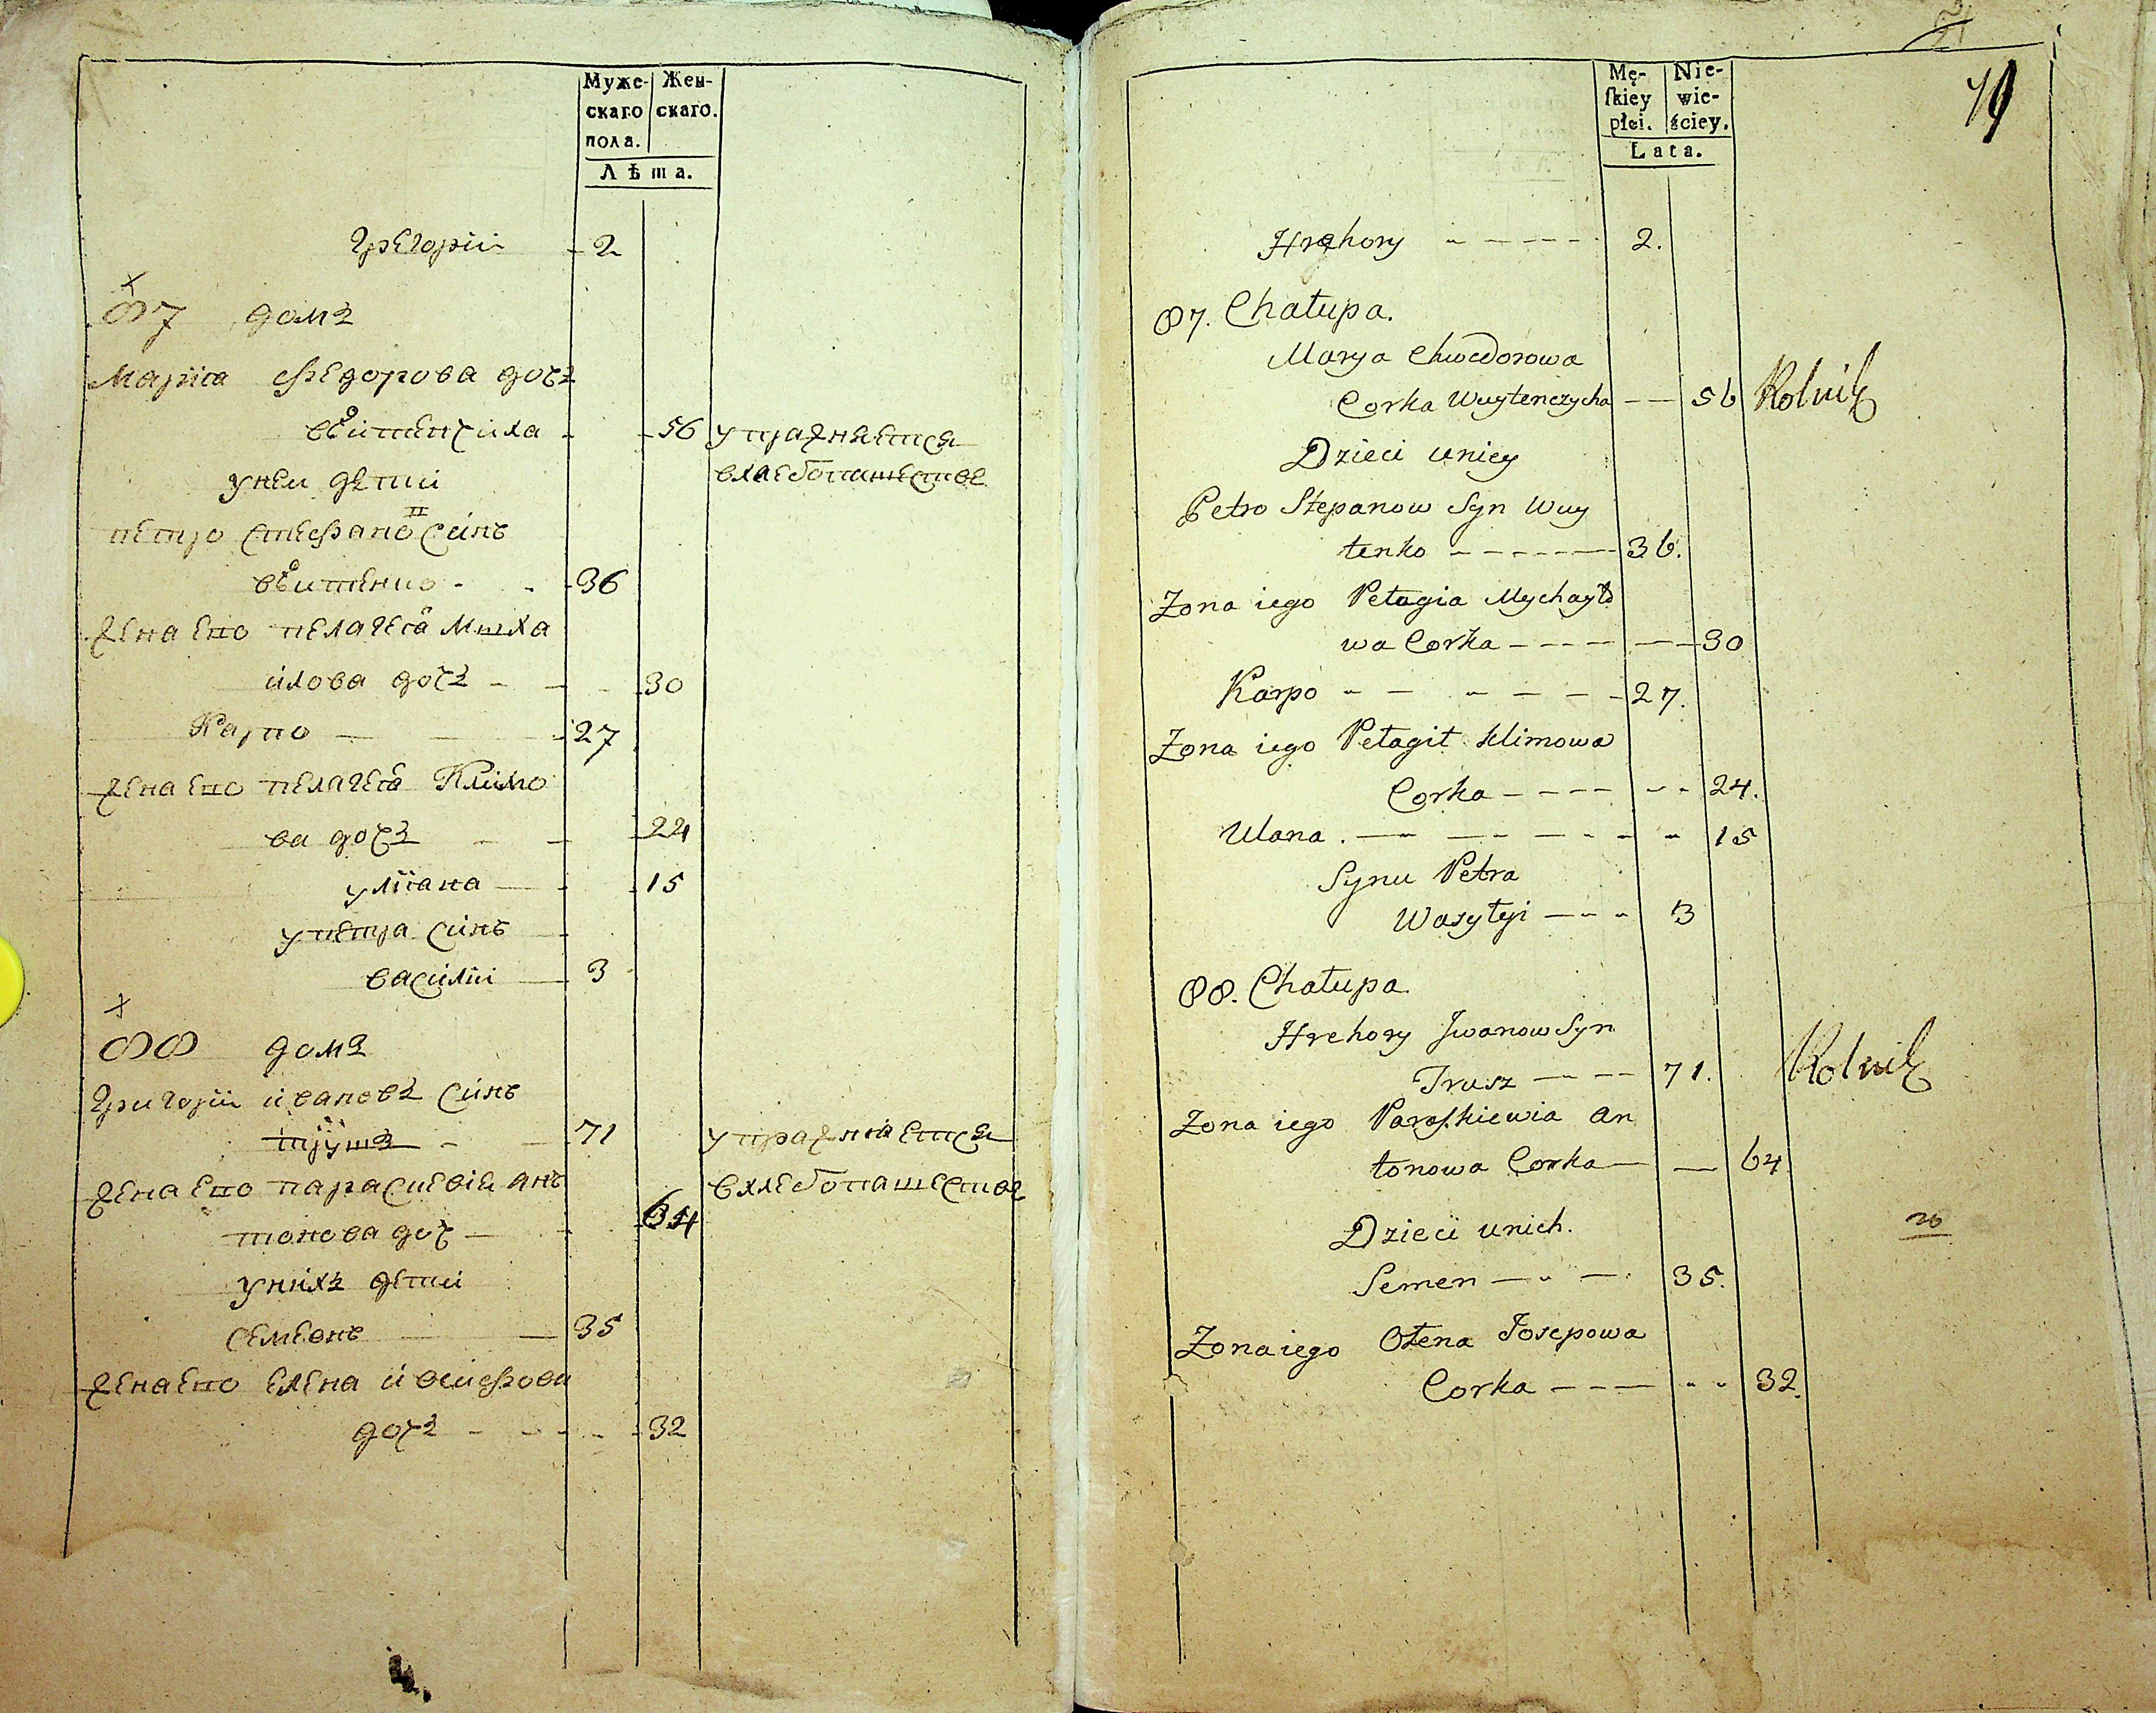 Муже- Жен-
скаго скаго.
пола.
Лѣта.
Григорїй - 2
87 домъ
Марїа Федорова дочъ
вуитенчиха - - 56 упражняется
в хлебопашестве
у неи дѣти
петро Стефанов Синъ
вуитенко - - - 36
жена его пелагеа Миха
илова дочъ - - - 30
Карпо - 27
жена его пелагеа Климо
ва дочъ - - 24
улїана - 15
у петра Синъ
василїй - 3
88 домъ
Григорїй ивановъ Синъ
трушъ - - 71 упражняется
жена его парасκевїя ан в хлебопашестве
тонова доч - 64
у нихъ дети
Семеонъ - 35
жена его Елена иосифова
дочъ - - - - 32
Mę- Nie-
ſkiey wie-
płci. ściey.
Lata.
79
Hrehory - - - - - 2.
87. Chałupa.
Marya Chwedorowa
Corka Wuytenczycha - - 56 Rolnik
Dzieci u niey
Petro Stepanow Syn Wuy
tenko - - - - - - 36.
Zona iego Pełagia Mychayło
wa Corka - - - - - - 30
Karpo - - - - - - 27.
Zona iego Pełagia Klimowa
Corka - - - - - - 24.
Ulana. - - - - - - - 15
Synu Petra
Wasyłyi - - - 3
88. Chałupa
Hrehory Jwanow Syn
Trusz - - - 71. Rolnik
Zona iego Paraſkiewia An
tonowa Corka - - 64
Dzieci u nich.
Semen - - - 35.
Zona iego Ołena Josepowa
Corka - - - - - 32.